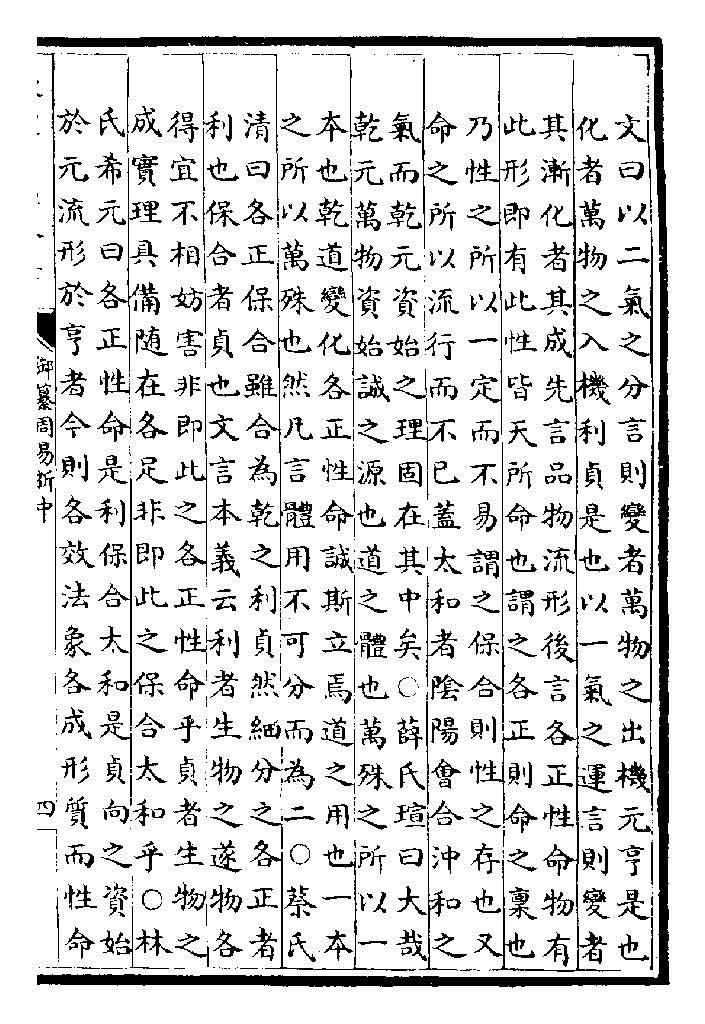 文曰以二氣之分言則變者萬物之出機元亨是也
化者萬物之入機利貞是也以一氣之運言則變者
其漸化者其成先言品物流形後言各正性命物有
此形即有此性皆天所命也謂之各正則命之稟也
乃性之所以一定而不易謂之保合則性之存也又
命之所以流行而不已蓋太和者隂陽會合沖和之
氣而乾元資始之理固在其中矣○薛氏瑄曰大哉
乾元萬物資始誠之源也道之體也萬殊之所以一
本也乾道變化各正性命誠斯立焉道之用也一本
之所以萬殊也然凡言體用不可分而為二○蔡氏
清曰各正保合雖合為乾之利貞然細分之各正者
利也保合者貞也文言本義云利者生物之遂物各
得宜不相妨害非即此之各正性命乎貞者生物之
成實理具備隨在各足非即此之保合太和乎○林
氏希元曰各正性命是利保合太和是貞向之資始
於元流形於亨者今則各效法象各成形質而性命
御纂周易折中
四